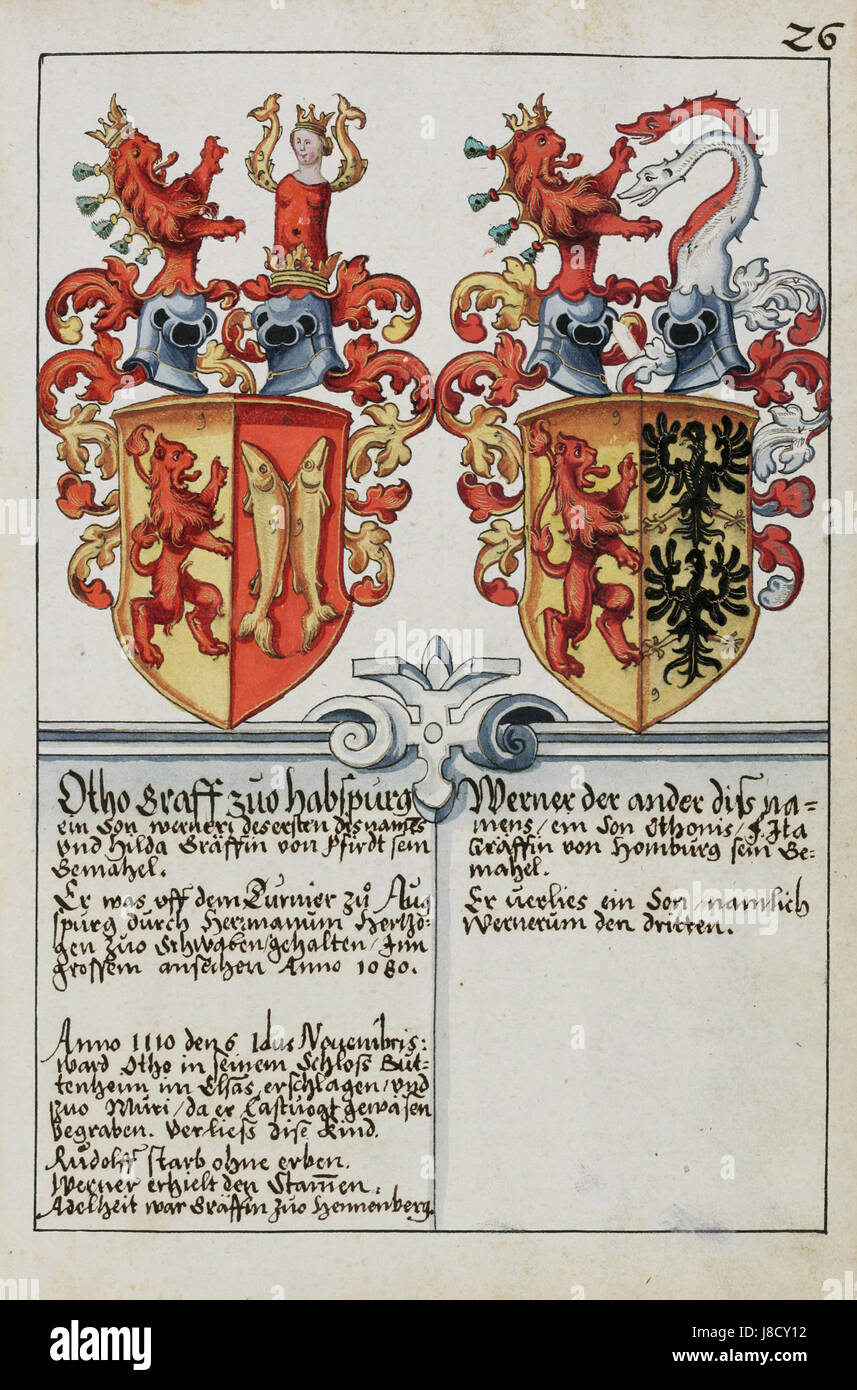 26
Otho Graff zuo Habspurg
ein Son Werneri des ersten des names
vnd Hilda Gräffin von Pfirdt sein
Gemahel.
Er was vff dem Turnier zů Aug
spurg durch Hermanum Hertzo-
gen zuo Schwaben/gehalten/Inn
grossem ansechen Anno 1080.
Anno 1110 den 6 Idus Nouembris:
ward Otho in seinem Schloss But-
tenheim im Elsas erschlagen/vnd
zuo Muri/da er Castuogt gewäsen
begraben. Verliess dise Kind.
Růdolff starb ohne erben.
Werner erhielt den Stammen.
Adelheit war Gräffin zuo Hennenberg.
Werner der ander diss na=
mens/ein Son Othonis/ Ita
Gräffin von Homburg sein Ge-
mahel.
Er verlies ein Son/namlich
Wernerum den dritten.
alamy
Image ID: J8CY12
www.alamy.com